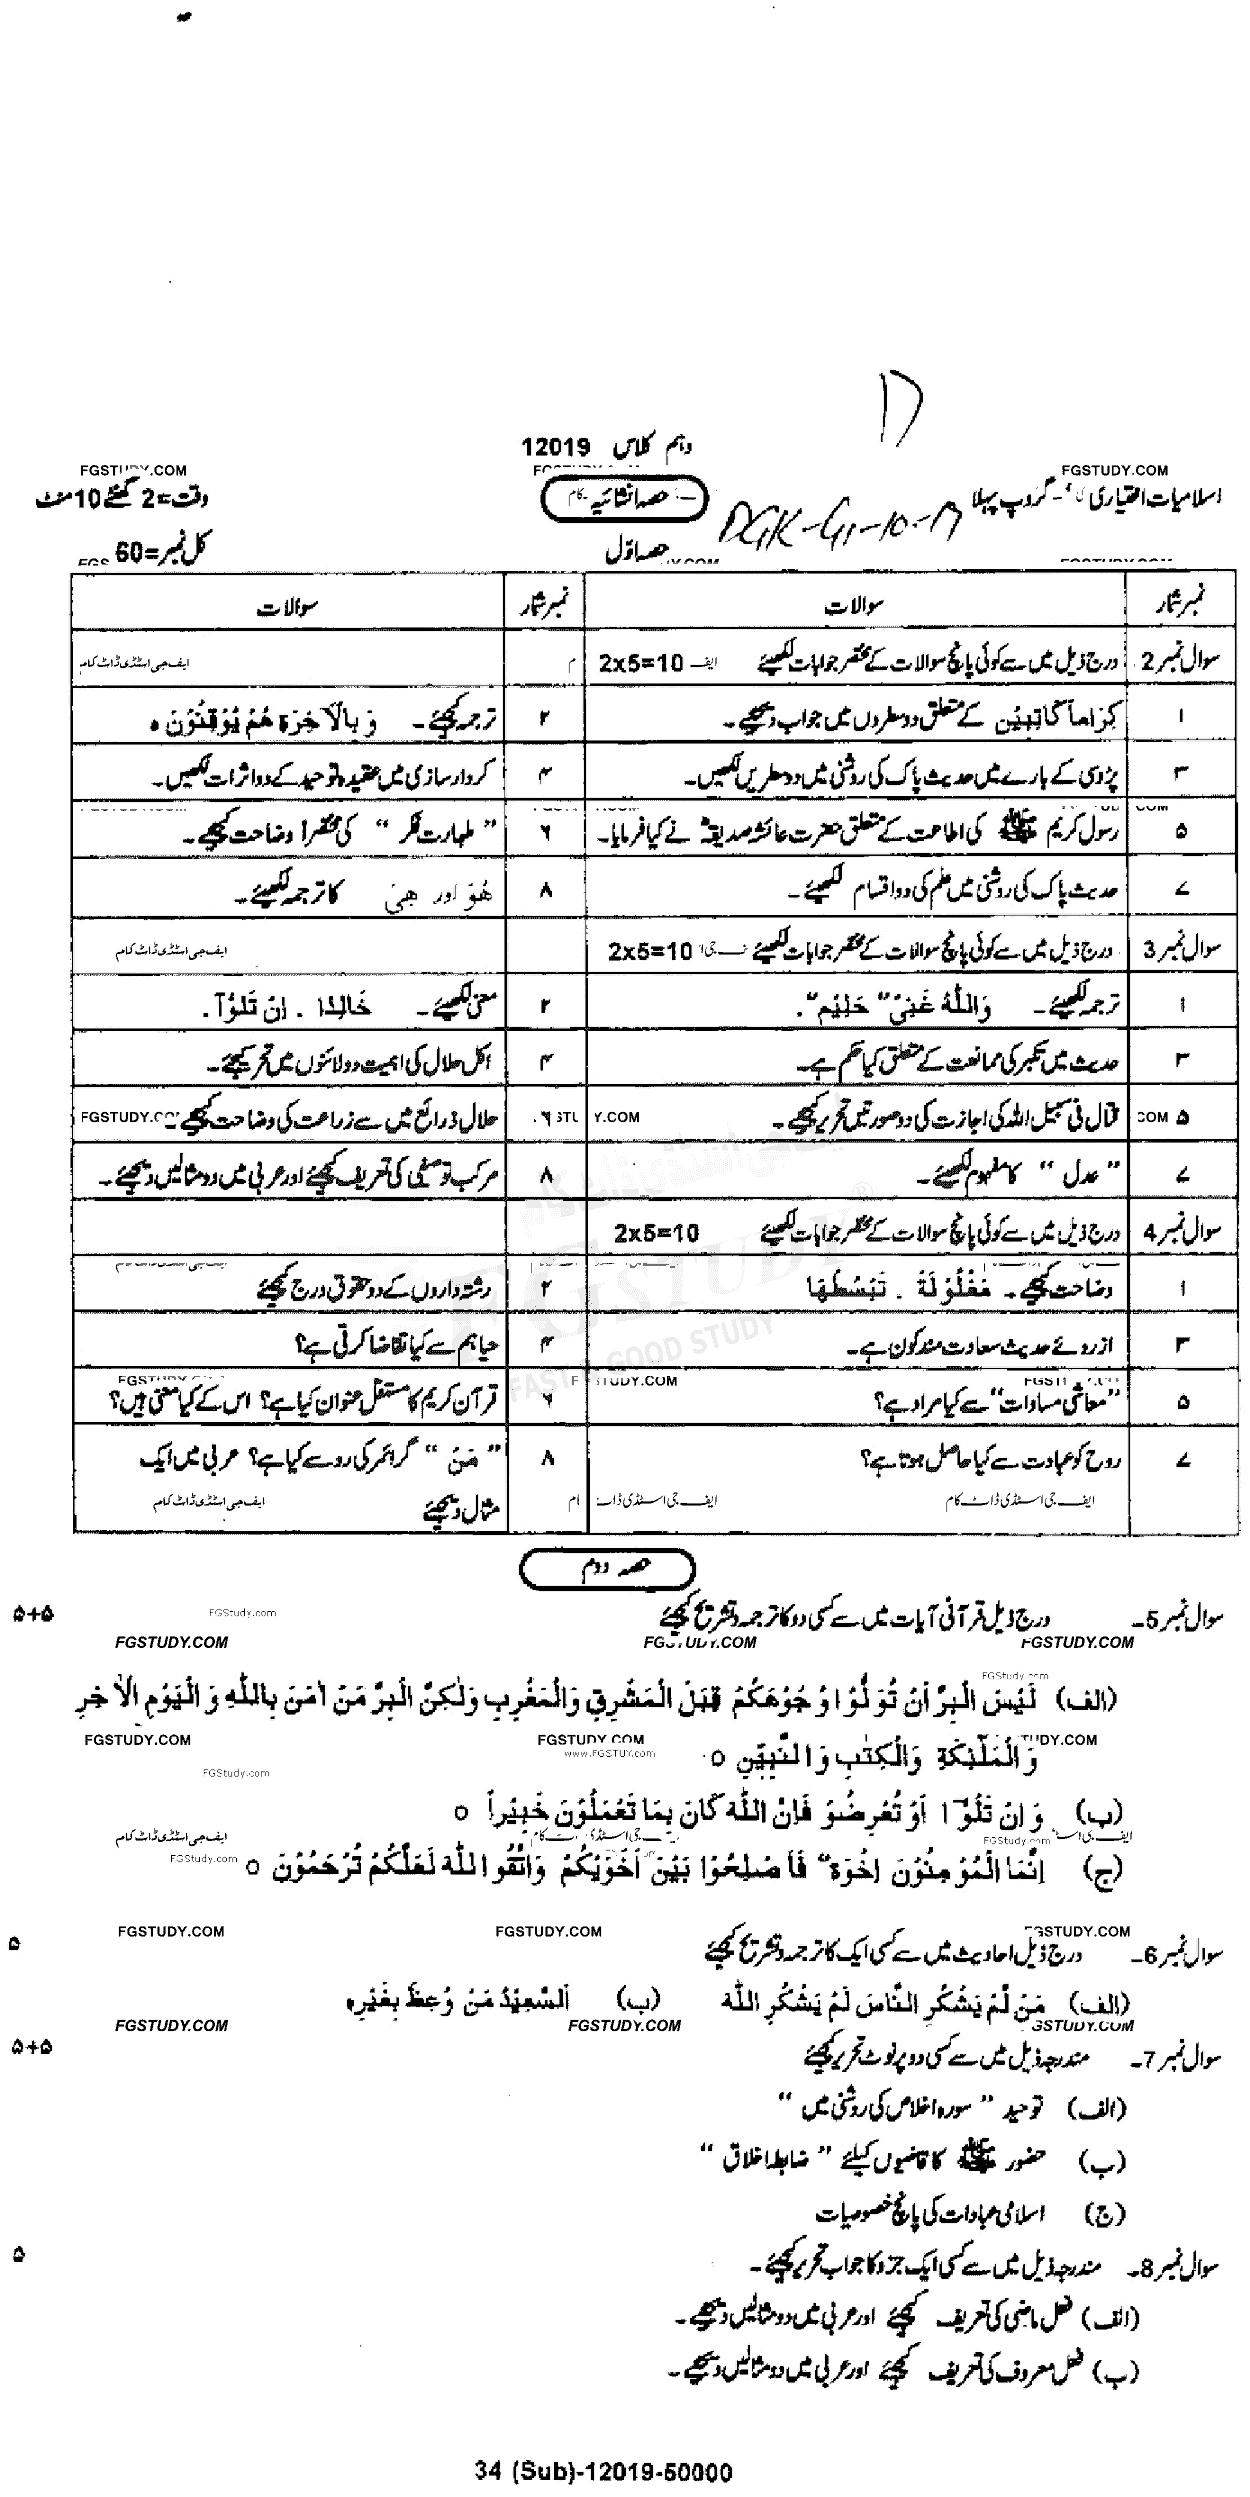 دہم کلاس 12019
FGSTUDY.COM FGSTUDY.COM
اسلامیات اختیاری - گروپ پہلا حصہ انشائیہ وقت = 2 گھنٹے 10 منٹ
DGK-G1-10-19
حصہ اوّل کل نمبر = 60
نمبر شمار سوالات نمبر شمار سوالات
سوال نمبر 2 درج ذیل میں سے کوئی پانچ سوالات کے مختصر جوابات لکھیئے 2x5=10 ایف جی اسٹڈی ڈاٹ کام
۱ کِرَاماً کَاتِبِیْنَ کے متعلق دو سطروں میں جواب دیجئے۔ ۲ ترجمہ کیجئے۔ وَبِالْاٰخِرَۃِ ھُمْ یُوْقِنُوْنَ ہ
۳ پڑوسی کے بارے میں حدیث پاک کی روشنی میں دو سطریں لکھیں۔ ۴ کردار سازی میں عقیدہ توحید کے دو اثرات لکھیں۔
۵ رسول کریم ﷺ کی اطاعت کے متعلق حضرت عائشہ صدیقہؓ نے کیا فرمایا۔ ۶ " طہارت فکر " کی مختصرا وضاحت کیجئے۔
۷ حدیث پاک کی روشنی میں علم کی دو اقسام لکھیئے۔ ۸ ھُوَ اور ھِیَ کا ترجمہ لکھیئے۔
سوال نمبر 3 درج ذیل میں سے کوئی پانچ سوالات کے مختصر جوابات لکھیئے 2x5=10 ایف جی اسٹڈی ڈاٹ کام
۱ ترجمہ لکھیئے۔ وَاللّٰہُ غَنِیٌّ حَلِیْم"۔ ۲ معنی لکھیئے۔ خَالِدًا ۔ اِنْ تَلْوٗآ۔
۳ حدیث میں تکبر کی ممانعت کے متعلق کیا حکم ہے۔ ۴ اکل حلال کی اہمیت دو لائنوں میں تحریر کیجئے۔
۵ قتال فی سبیل اللہ کی اجازت کی دو صورتیں تحریر کیجئے۔ ۶ حلال ذرائع میں سے زراعت کی وضاحت کیجئے۔
۷ " عدل " کا مفہوم لکھیئے۔ ۸ مرکب توصیفی کی تعریف کیجئے اور عربی میں دو مثالیں دیجئے۔
سوال نمبر 4 درج ذیل میں سے کوئی پانچ سوالات کے مختصر جوابات لکھیئے 2x5=10
۱ وضاحت کیجئے۔ مَغْلُوْلَۃً ۔ تَبْسُطْہَا ۲ رشتہ داروں کے دو حقوق درج کیجئے
۳ از روئے حدیث سعادت مند کون ہے۔ ۴ حیا ہم سے کیا تقاضا کرتی ہے؟
۵ "معاشی مساوات" سے کیا مراد ہے؟ ۶ قرآن کریم کا مستقل عنوان کیا ہے؟ اس کے کیا معنی ہیں؟
۷ روح کو عبادت سے کیا حاصل ہوتا ہے؟ ۸ " مَنْ " گرائمر کی رو سے کیا ہے؟ عربی میں ایک
مثال دیجئے
حصہ دوم
سوال نمبر 5۔ درج ذیل قرآنی آیات میں سے کسی دو کا ترجمہ و تشریح کیجئے ۵+۵
FGSTUDY.COM FGSTUDY.COM FGSTUDY.COM
(الف) لَیْسَ الْبِرَّ اَنْ تُوَلُّوْا وُجُوْھَکُمْ قِبَلَ الْمَشْرِقِ وَالْمَغْرِبِ وَلٰکِنَّ الْبِرَّ مَنْ اٰمَنَ بِاللّٰہِ وَالْیَوْمِ الْاٰخِرِ
وَالْمَلٰٓئِکَۃِ وَالْکِتٰبِ وَالنَّبِیّٖنَ ہ
(ب) وَاِنْ تَلْوٗٓا اَوْ تُعْرِضُوْ فَاِنَّ اللّٰہَ کَانَ بِمَا تَعْمَلُوْنَ خَبِیْراً ہ
(ج) اِنَّمَا الْمُوْمِنُوْنَ اِخْوَۃ" فَاَصْلِحُوْا بَیْنَ اَخَوَیْکُمْ وَاتَّقُو اللّٰہَ لَعَلَّکُمْ تُرْحَمُوْنَ ہ
FGSTUDY.COM FGSTUDY.COM FGSTUDY.COM
سوال نمبر 6۔ درج ذیل احادیث میں سے کسی ایک کا ترجمہ و تشریح کیجئے ۵
(الف) مَنْ لَّمْ یَشْکُرِ النَّاسَ لَمْ یَشْکُرِ اللّٰہَ (ب) اَلسَّعِیْدُ مَنْ وُعِظَ بِغَیْرِہٖ
FGSTUDY.COM FGSTUDY.COM FGSTUDY.COM
سوال نمبر 7۔ مندرجہ ذیل میں سے کسی دو پر نوٹ تحریر کیجئے ۵+۵
(الف) توحید " سورہ اخلاص کی روشنی میں "
(ب) حضور ﷺ کا قاضیوں کیلئے " ضابطہ اخلاق "
(ج) اسلامی عبادات کی پانچ خصوصیات
سوال نمبر 8۔ مندرجہ ذیل میں سے کسی ایک جزو کا جواب تحریر کیجئے۔ ۵
(الف) فعل ماضی کی تعریف کیجئے اور عربی میں دو مثالیں دیجئے۔
(ب) فعل معروف کی تعریف کیجئے اور عربی میں دو مثالیں دیجئے۔
34 (Sub)-12019-50000